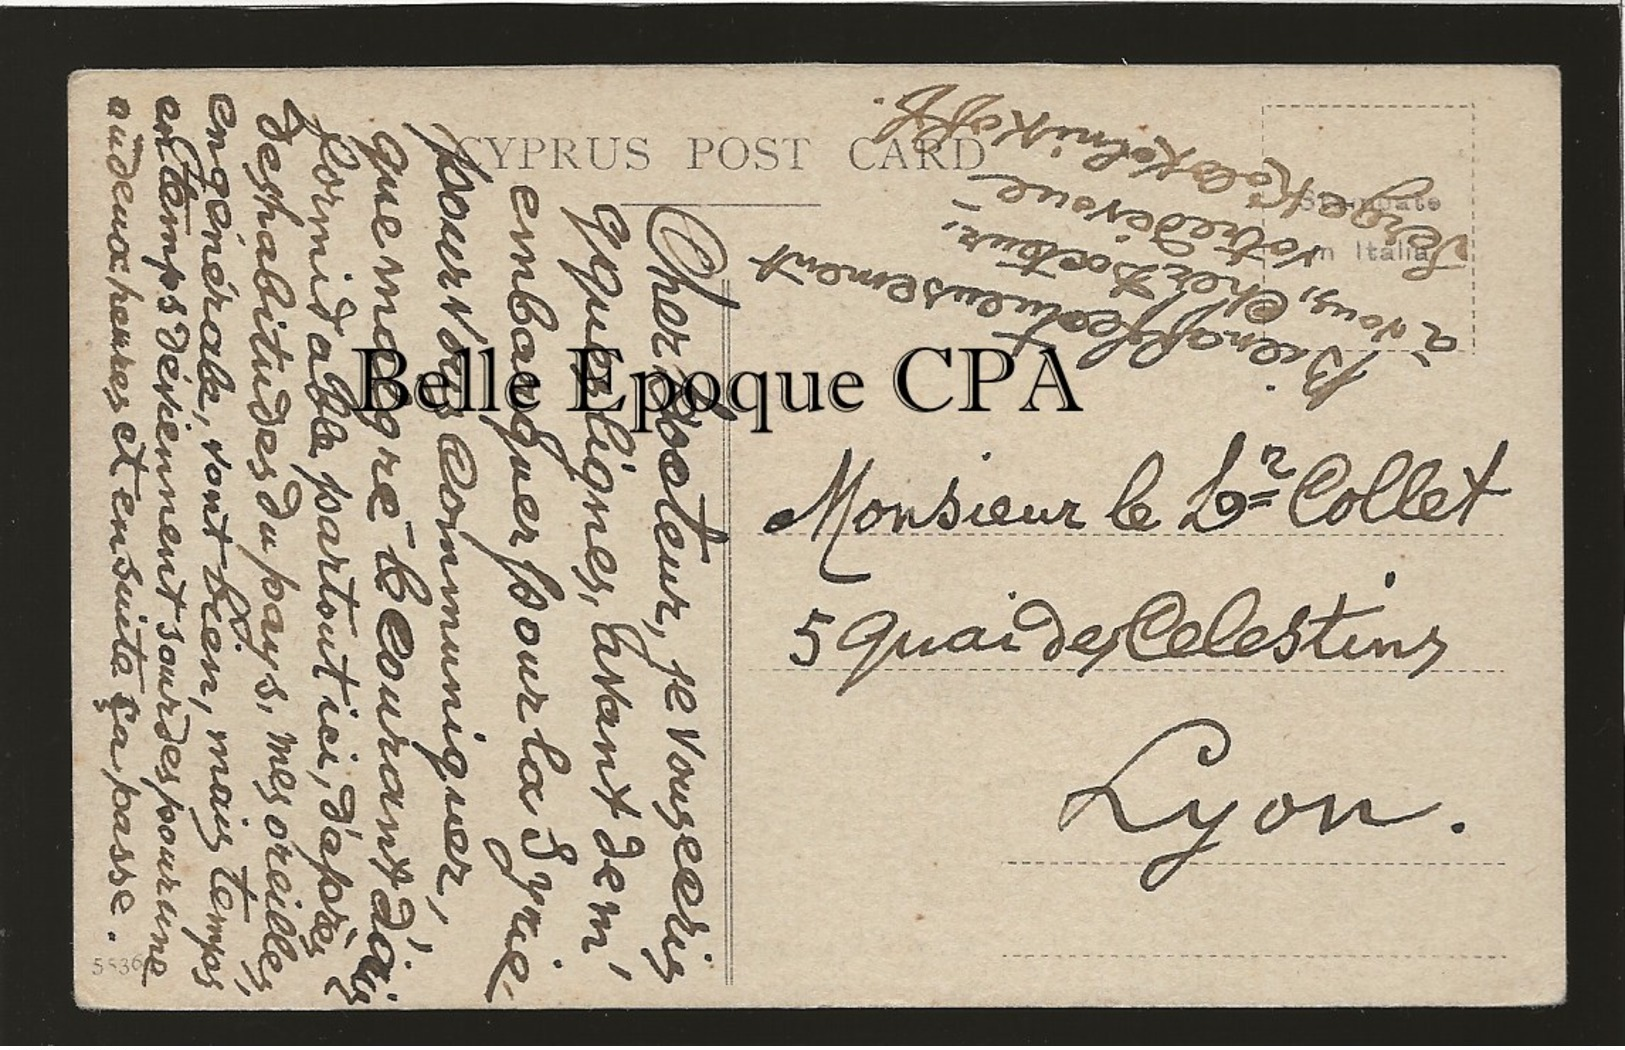 CYPRUS POST CARD
Stampato
in Italia
Cher Docteur, je vous écris
qques lignes, avant de m'
embarquer pour la Syrie,
pour vous communiquer,
que malgré le courant d'air
formidable partout ici, d'après
des habitudes du pays, mes oreilles,
en générale, vont bien, mais temps,
en temps dévienment sourdes pour une
au deux heures et ensuite ça passe.
Bien affectueusement
à vous, cher Docteur,
votre dévoué
Serge Kolokolnikoff.
Monsieur le Dr Collet
5 quai des Celestins
Lyon.
Belle Epoque CPA